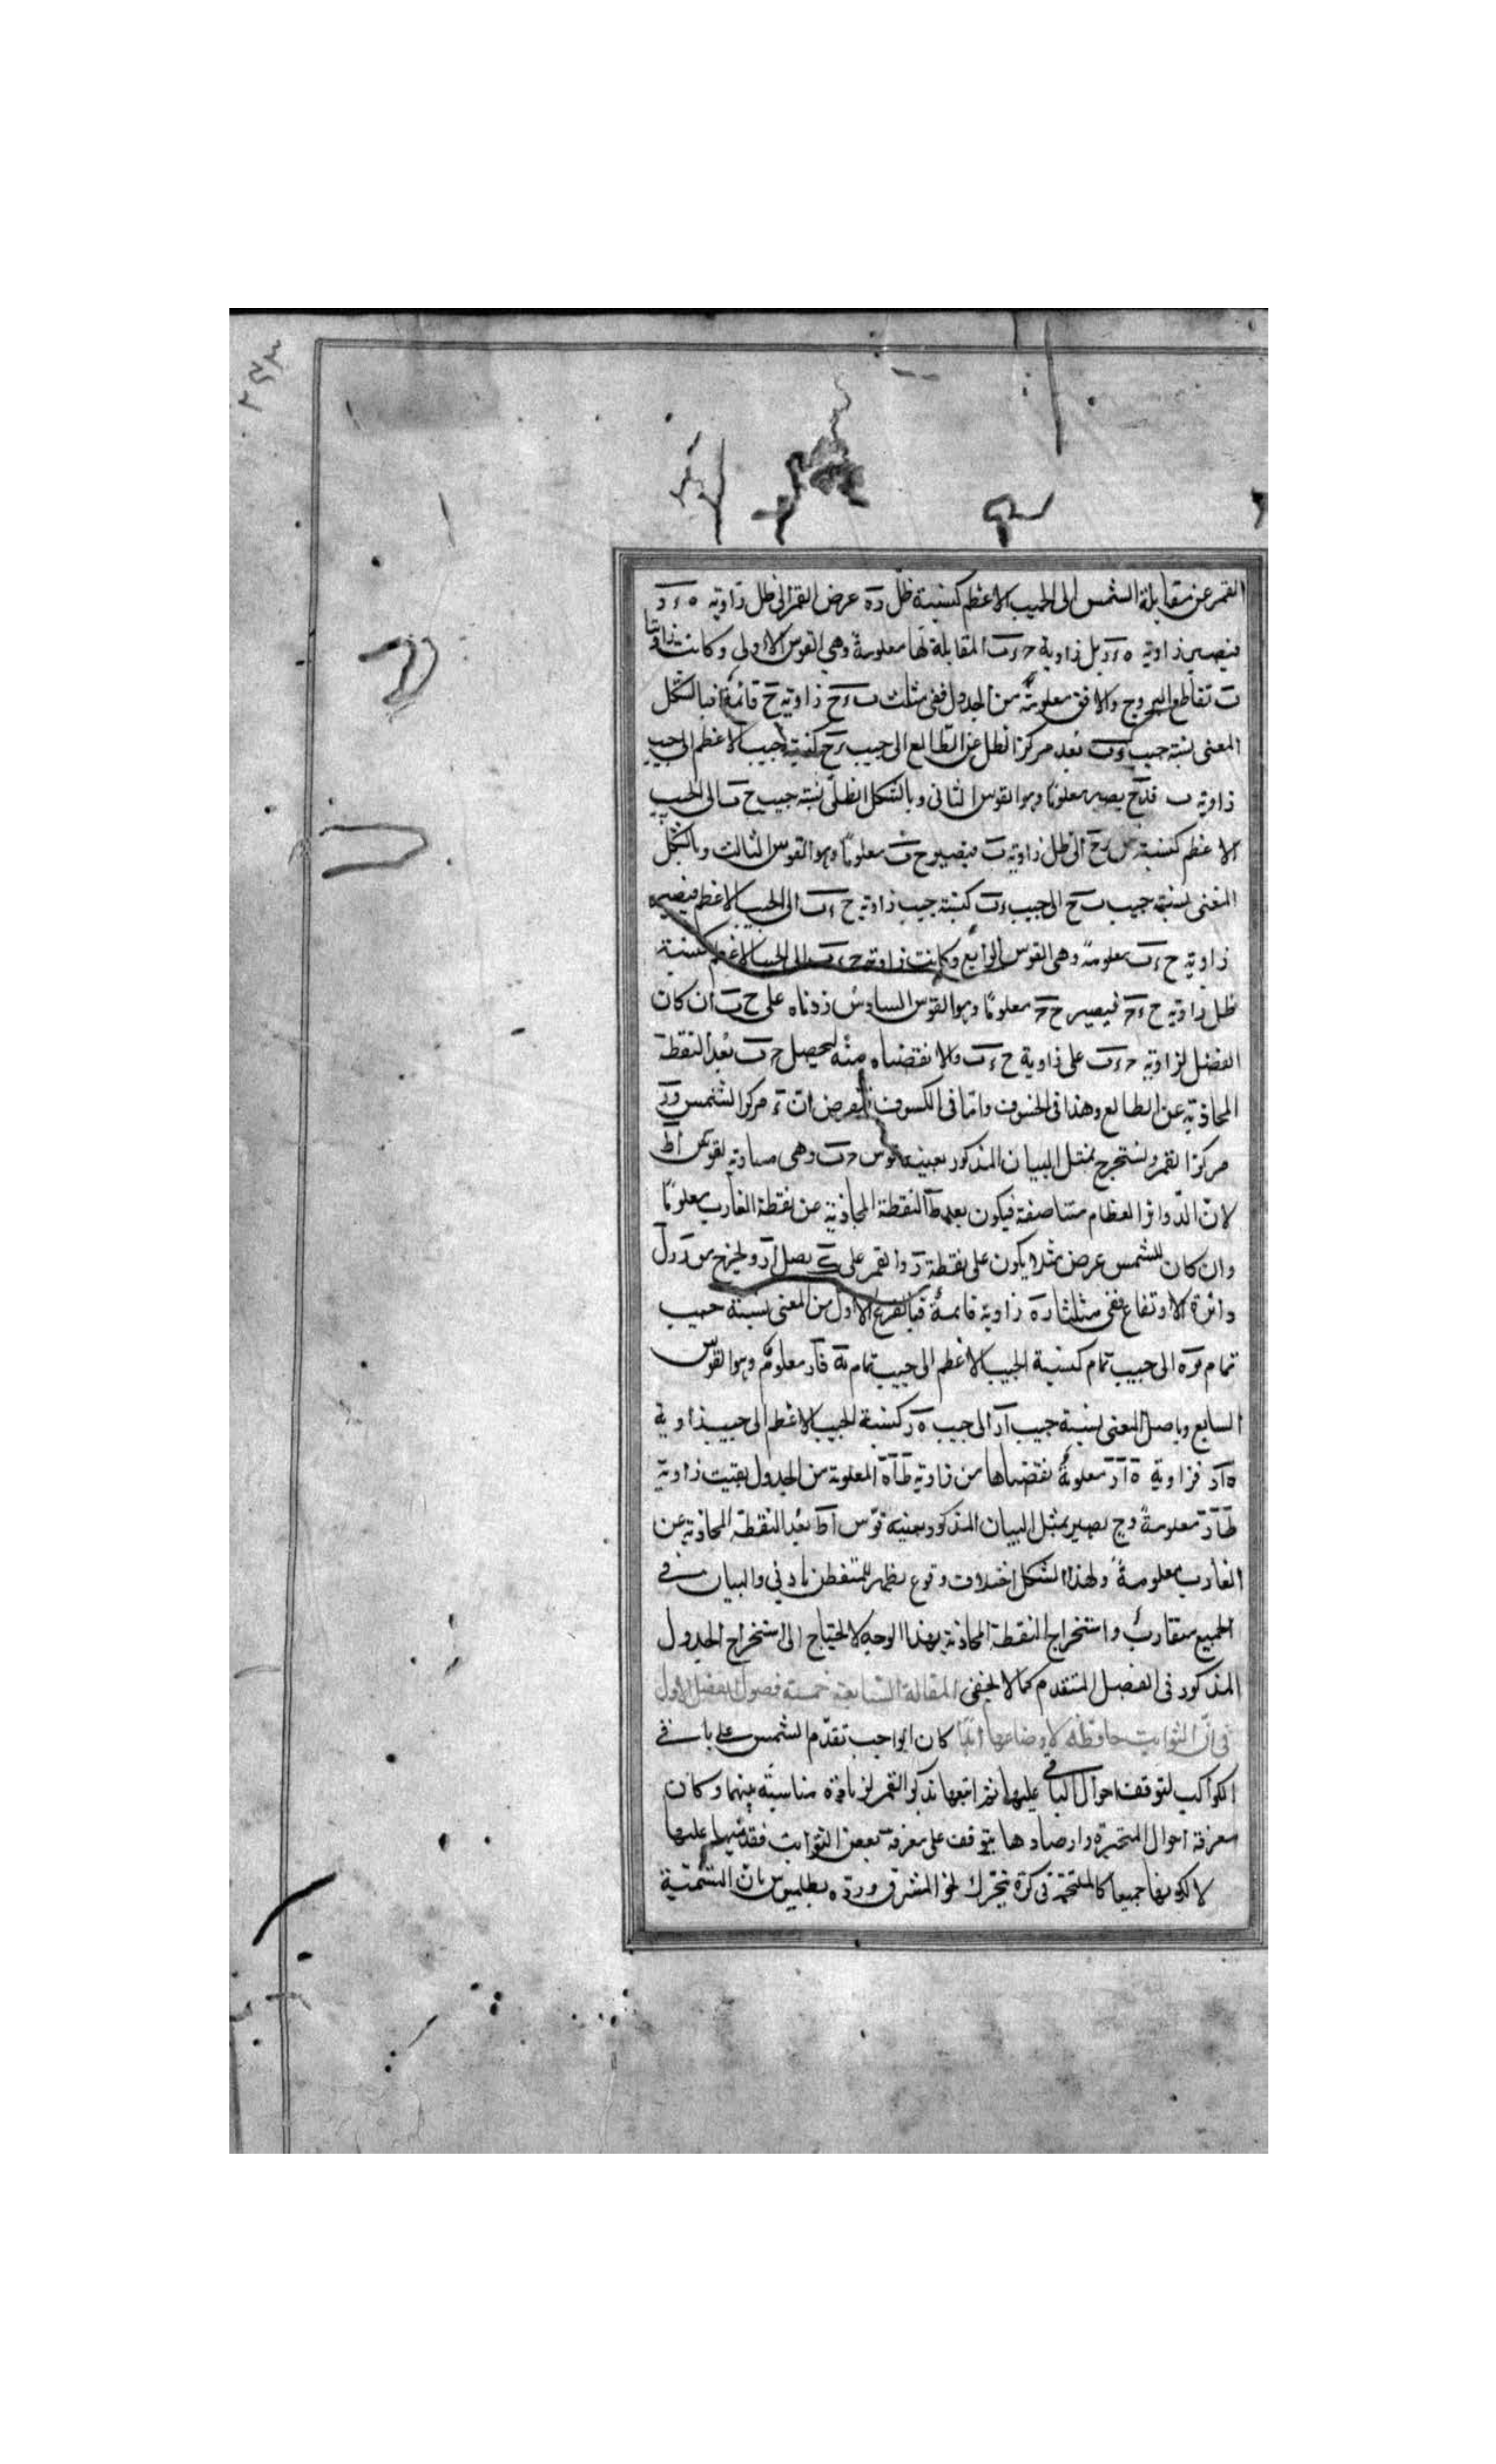 القمر عن مقابلة الشمس الى الجيب الاعظم كنسبة ظل ده عرض القمر الى ظل زاوية ه ء د
فيصير زاوية ه ء د بل زاوية ح ء ب المقابلة لها معلومة وهي القوس الاولى وكانت زاويتا
ب تقاطع البروج والافق معلومة من الجدول ففي مثلث ب ء ح زاوية ح قائمة فبالشكل
المغنى نسبة جيب ء ب بعد مركز الظل عن الطالع الى جيب ء ح كنسبة الجيب الاعظم الى جيب
زاوية ب فدح يصير معلوما وهو القوس الثاني وبالشكل الظلي نسبة جيب ح ب الى الجيب
الاعظم كنسبة ظل ء ح الى ظل زاوية ب فيصير ح ب معلوما وهو القوس الثالث وبالشكل
المغنى نسبة جيب ب ح الى جيب ء ب كنسبة جيب زاوية ح ء ب الى الجيب الاعظم فيصير
زاوية ح ء ب معلومة وهي القوس الرابع وكانت زاوية ح ء ب الى الجيب الاعظم كنسبة
ظل زاوية ح ء ح فيصير ح ح معلوما وهو القوس السادس زدناه على ح ب ان كان
الفضل لزاوية ح ء ب على زاوية ح ء ب والا نقصناه منه ليحصل ح ب بعد النقطة
المحاذية عن الطالع وهذا في الخسوف واما في الكسوف فلنفرض ان ء مركز الشمس و د
مركز القمر ونستخرج بمثل البيان المذكور بعينه قوس ح ب وهي مساوية لقوس اط
لان الدوائر العظام متناصفة فيكون بعد ط النقطة المحاذية عن نقطة الغارب معلوما
وان كان للشمس عرض مثلا يكون على نقطة د والقمر على ك نصل اد ولخرج
دائرة الارتفاع ففي مثلث اده زاوية قائمة فبالفرع الاول من المغنى نسبة جيب
تمام ده الى جيب تمام كنسبة الجيب الاعظم الى جيب تمام ه فاد معلوم وهو القوس
السابع وباصل المغنى نسبة جيب اد الى جيب ه د كنسبة الجيب الاعظم الى جيب زاوية
ه اد فزاوية ه ا د معلومة نقصناها من زاوية ط ا ه المعلومة من الجدول بقيت زاوية
ط ا د معلومة وح يصير بمثل البيان المذكور بعينه قوس اط بعد النقطة المحاذية عن
الغارب معلومة ولهذا الشكل اختلاف وقوع يظهر للمتفطن بادنى والبيان في
الجميع متقارب واستخراج النقطة المحاذية بهذا الوجه لا يحتاج الى استخراج الجدول
المذكور في الفصل المتقدم كما لا يخفى المقالة السابعة خمسة فصول الفصل الاول
في ان الثوابت حافظة لاوضاعها ابدا كان الواجب تقدم الشمس على باقي
الكواكب لتوقف احوال الباقي عليها ثم اتبعها بذكر القمر لزيادة مناسبة بينهما وكان
معرفة احوال المتحيرة وارصادها يتوقف على معرفة بعض الثوابت فقدمها عليها
لا لكونها جميعا كالملتحمة في كرة تتحرك نحو المشرق ورده بطلميوس بان